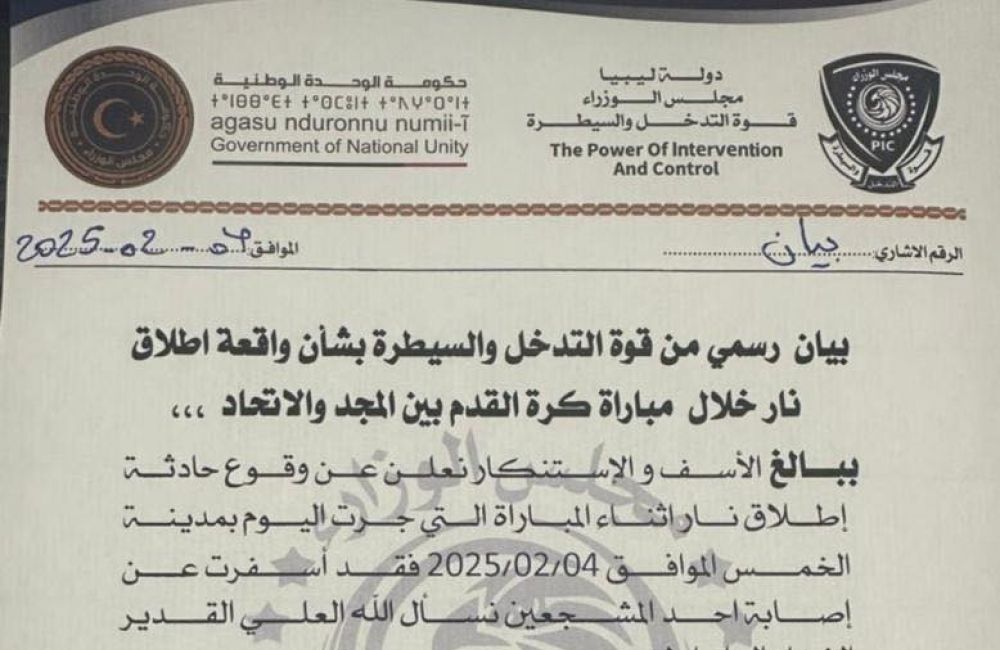 دولة ليبيا
مجلس الوزراء
قوة التدخل والسيطرة
The Power Of Intervention
And Control
مجلس الوزراء
PIC
حكومة الوحدة الوطنية
agasu nduronnu numii-ī
Government of National Unity
مجلس الوزراء
الرقم الاشاري: بيان
الموافق: 2025-02-
بيان رسمي من قوة التدخل والسيطرة بشأن واقعة اطلاق
نار خلال مباراة كرة القدم بين المجد والاتحاد ،،،
ببالغ الأسف و الإستنكار نعلن عن وقوع حادثة
إطلاق نار اثناء المباراة التي جرت اليوم بمدينة
الخمس الموافق 2025/02/04 فقد أسفرت عن
إصابة احد المشجعين نسأل الله العلي القدير